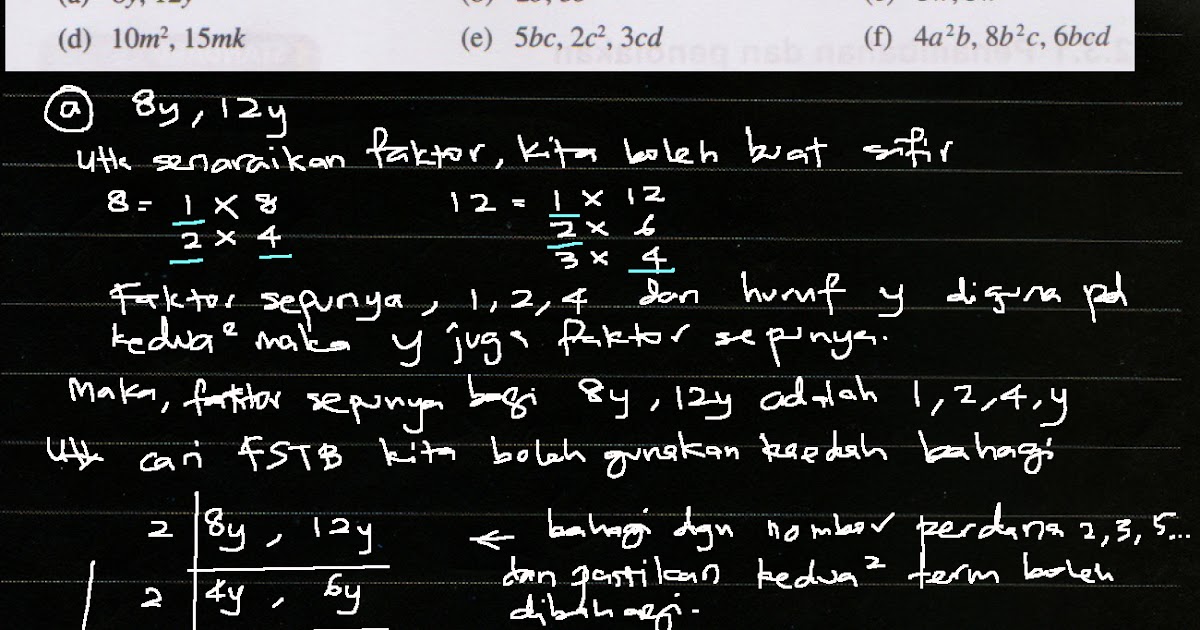 (d) 10m², 15mk (e) 5bc, 2c², 3cd (f) 4a²b, 8b²c, 6bcd
ⓐ 8y, 12y
Utk senaraikan faktor, kita boleh buat sifir
8 = 1 × 8 12 = 1 × 12
2 × 4 2 × 6
3 × 4
Faktor sepunya, 1, 2, 4 dan huruf y diguna pd
kedua² maka y juga faktor sepunya.
Maka, faktor sepunya bagi 8y, 12y adalah 1, 2, 4, y
Utk cari FSTB kita boleh gunakan kaedah bahagi
2 8y, 12y ← bahagi dgn nombor perdana 2, 3, 5...
2 4y, 6y dan pastikan kedua² term boleh
dibahagi.